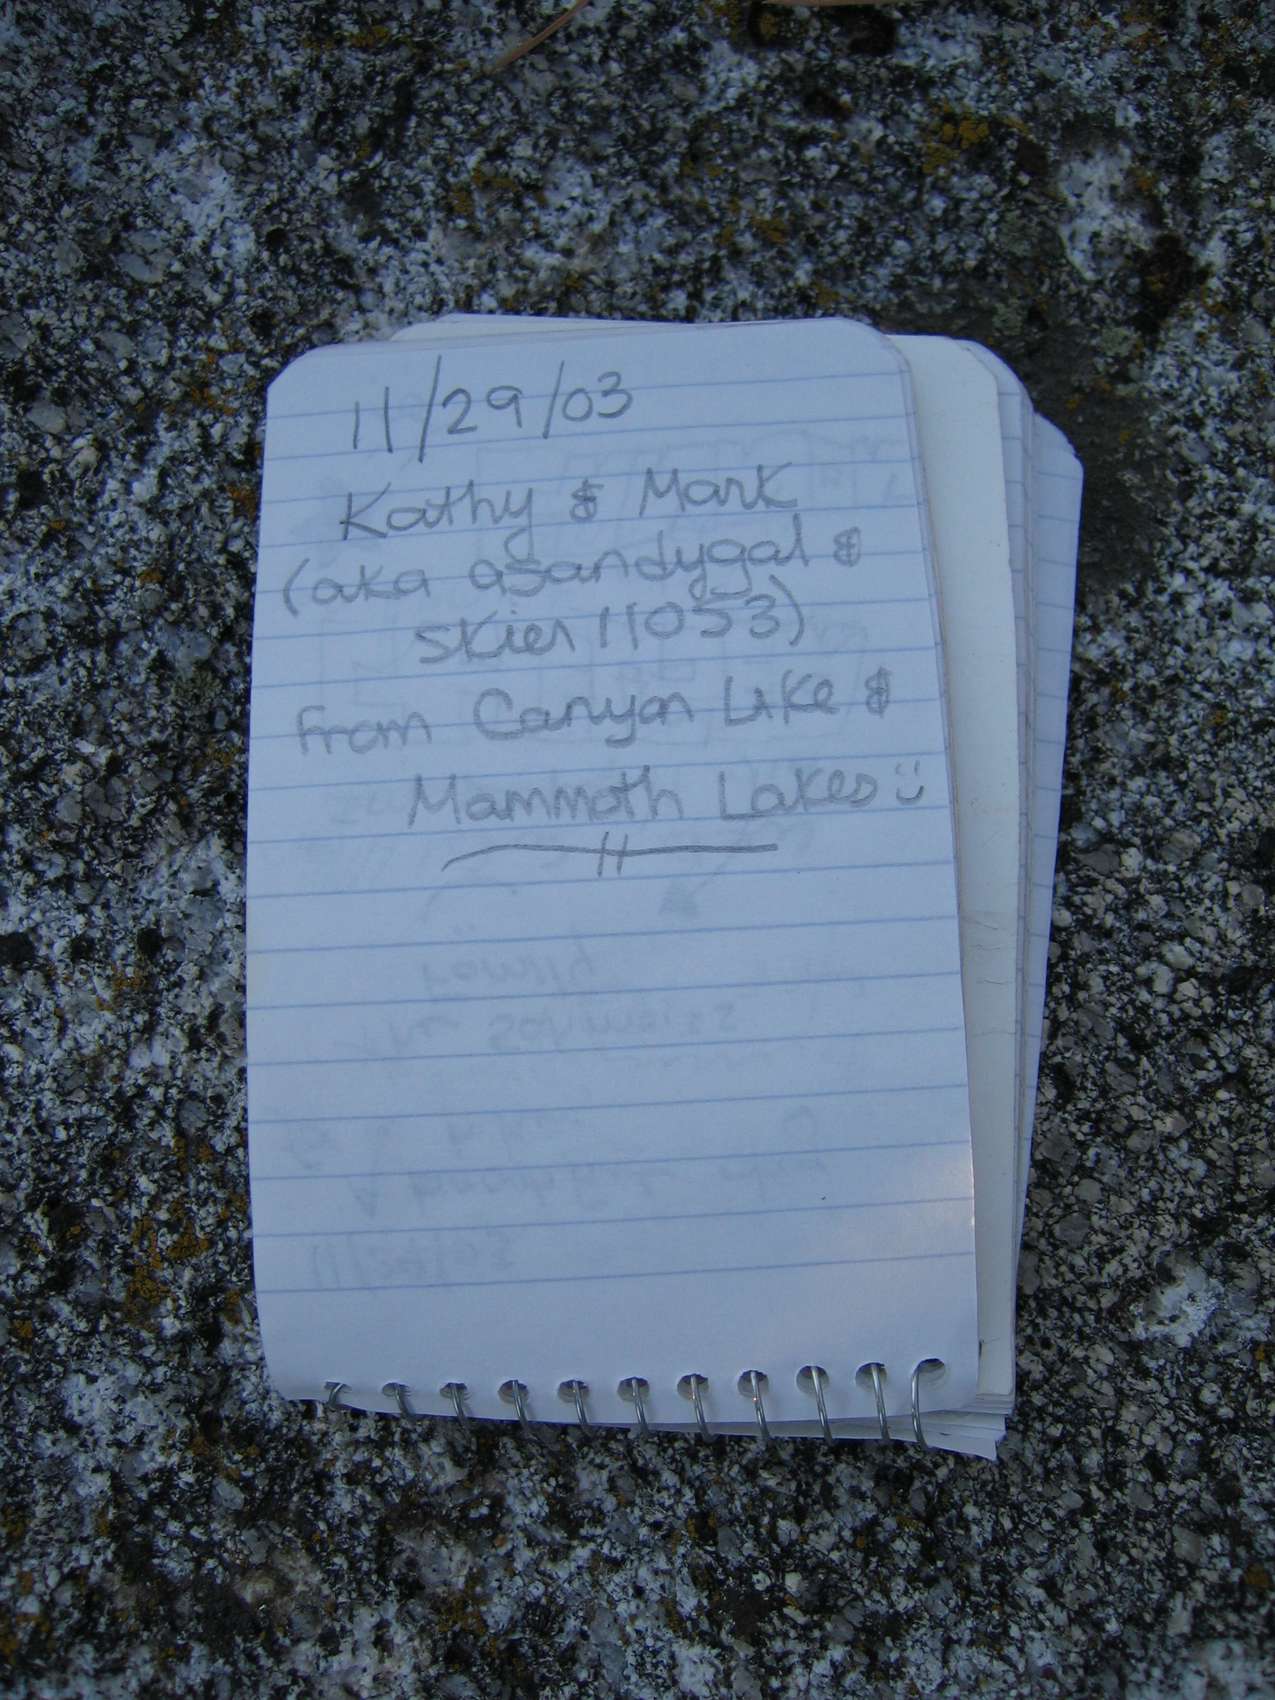 11/29/03
Kathy & Mark
(aka asandygal &
skier11053)
From Canyon Lake &
Mammoth Lakes :)